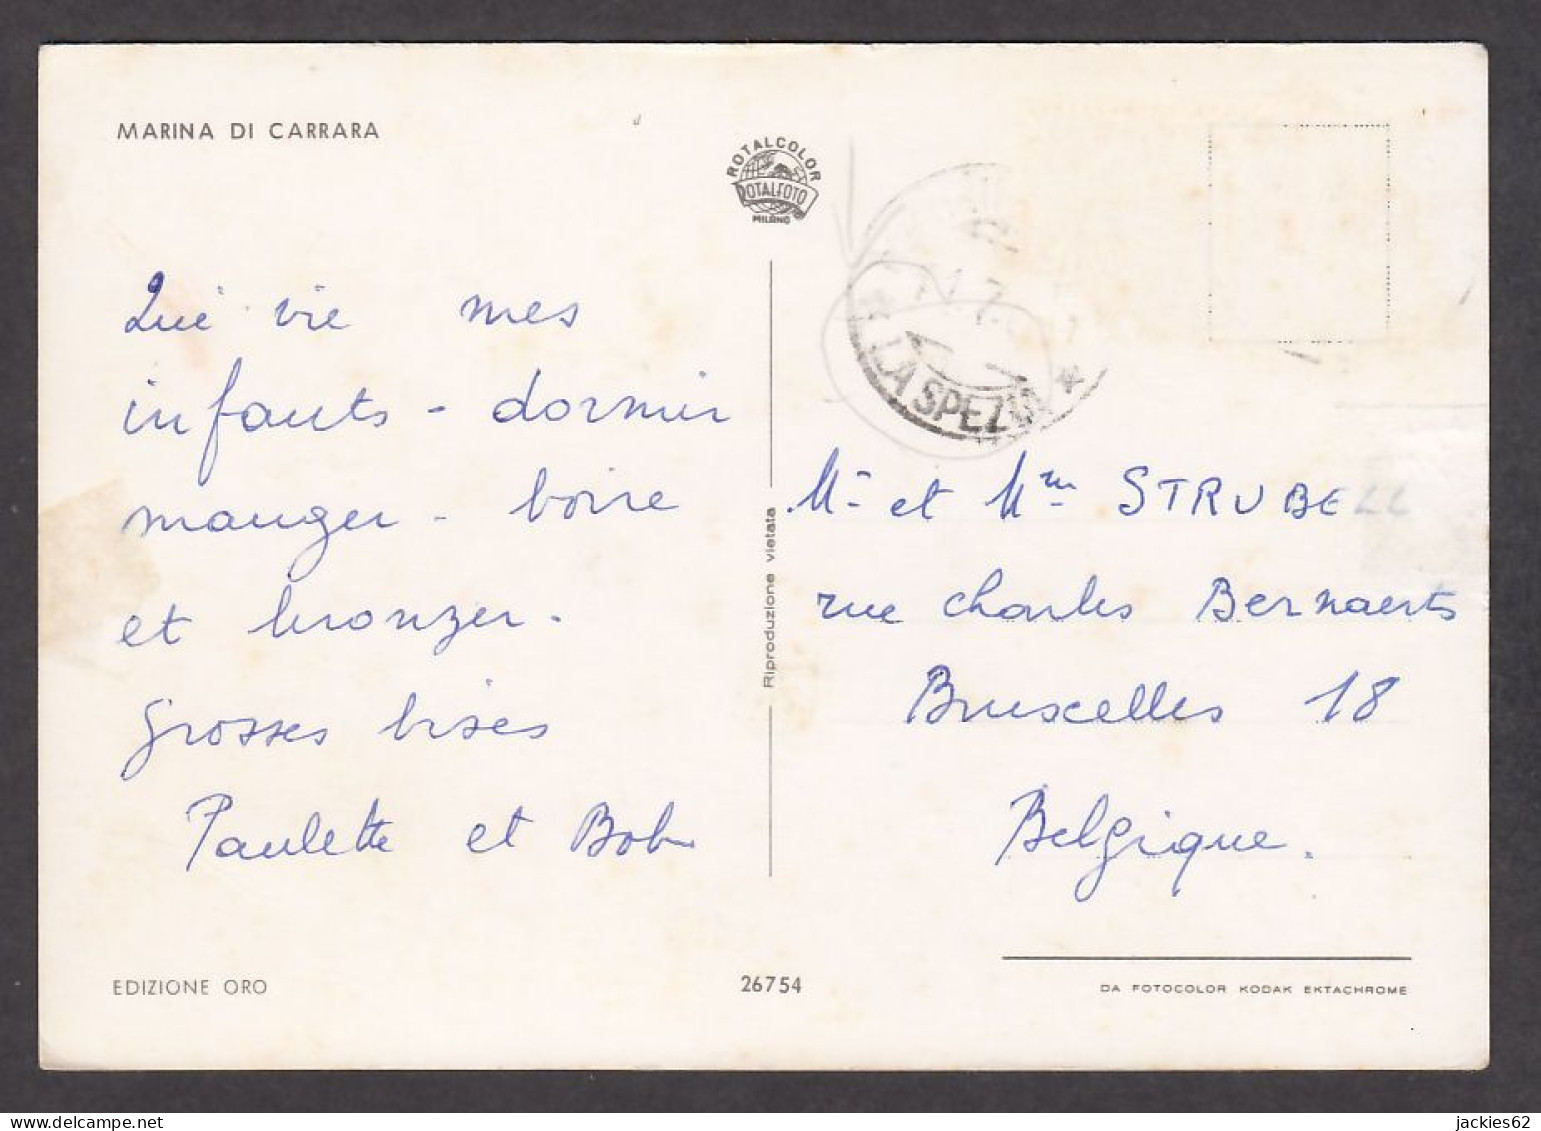 MARINA DI CARRARA
ROTALCOLOR
ROTALFOTO
MILANO
LA SPEZIA
Qui vie mes
infants - dormir
manger - boire
et bronzer.
Grosses bises
Paulette et Bob
Riproduzione vietata
Mr et Mme STRUBELL
rue Charles Bernaerts
Bruxelles 18
Belgique.
EDIZIONE ORO
26754
DA FOTOCOLOR KODAK EKTACHROME
jackies62